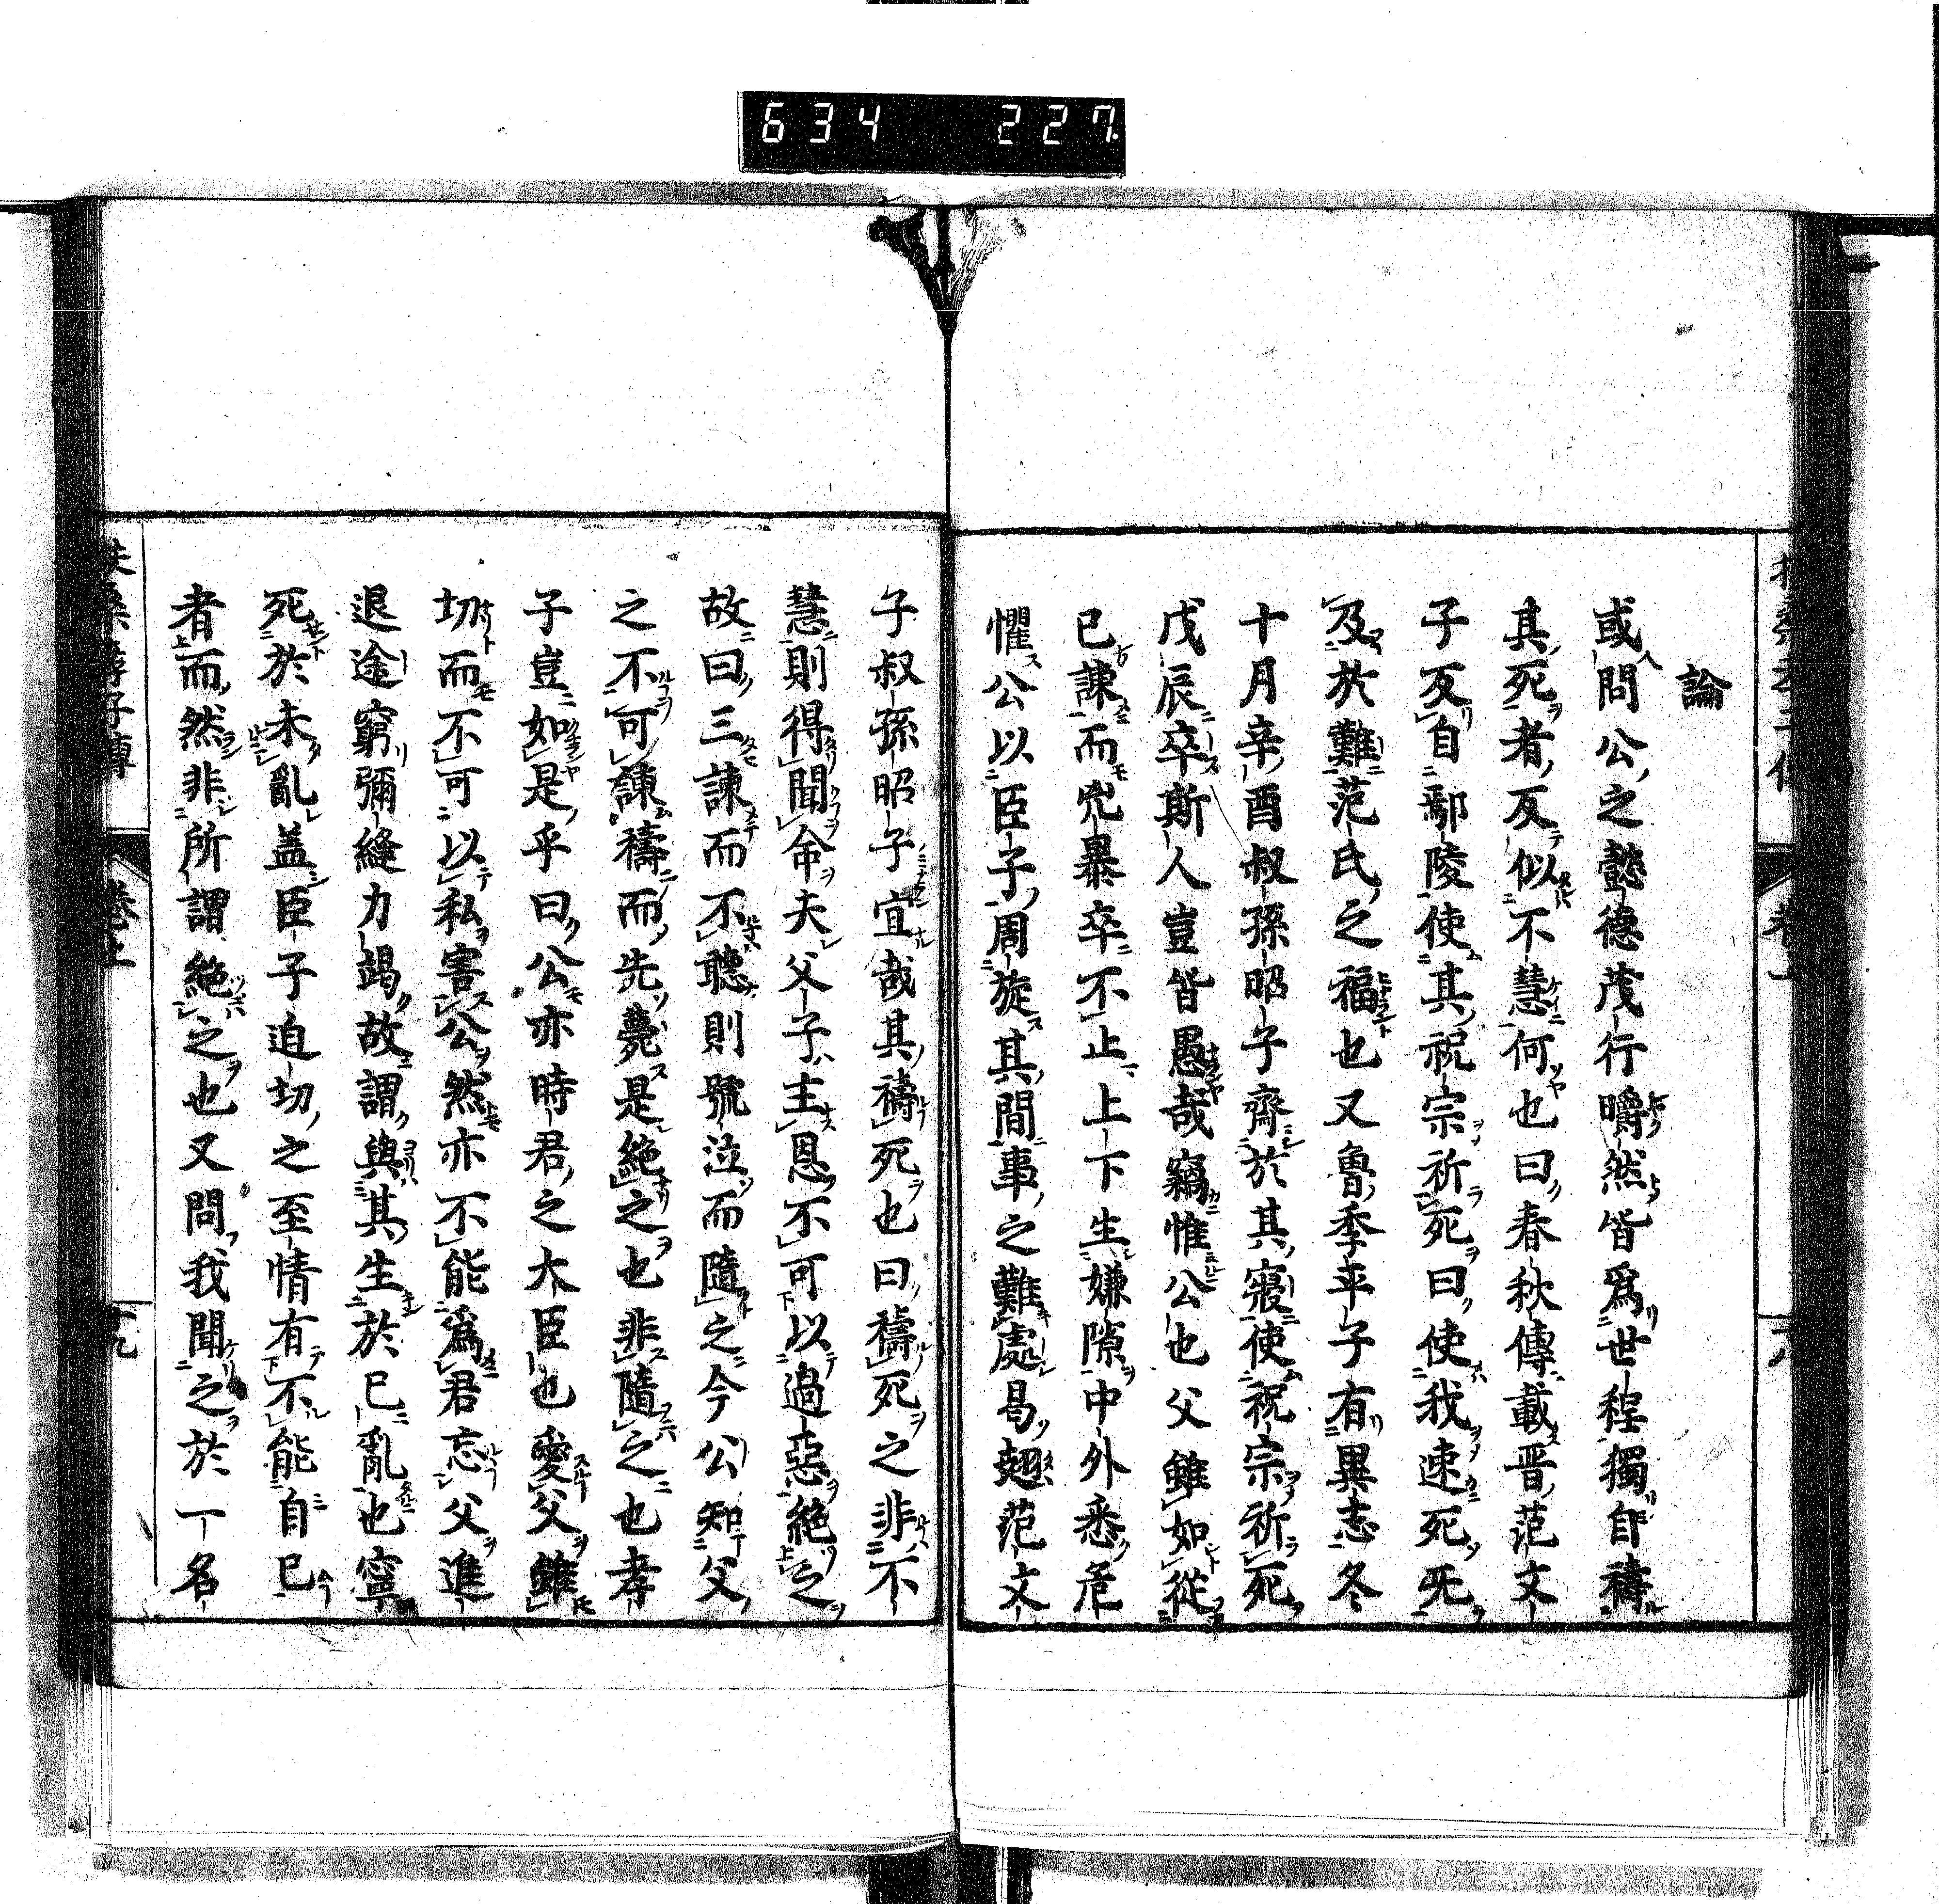 634 227
論
或問公之懿德茂行嚼然皆爲世程獨自禱
其死者反似不慧何也曰春秋傳載晋范文
子反自鄢陵使其祝宗祈死曰使我速死无
及於難范氏之福也又魯季平子有異志冬
十月辛酉叔孫昭子齋於其寢使祝宗祈死
戊辰卒斯人豈皆愚哉竊惟公也父雖如從
已諫而兇暴卒不止上下生嫌隙中外悉危
懼公以臣子周旋其間事之難處曷翅范文
子叔孫昭子宜哉其禱死也曰禱死之非不
慧則得聞命夫父子主恩不可以過惡絕之
故曰三諫而不聽則號泣而隨之今公知父
之不可諫禱而先薨是絕之也非隨之也孝
子豈如是乎曰公亦時君之大臣也愛父雖
切而不可以私害公然亦不能爲君忘父進
退途窮彌縫力竭故謂與其生於已亂也寧
死於未亂盖臣子迫切之至情有不能自已
者而然非所謂絕之也又問我聞之於一名
扶桑孝子傳 卷上